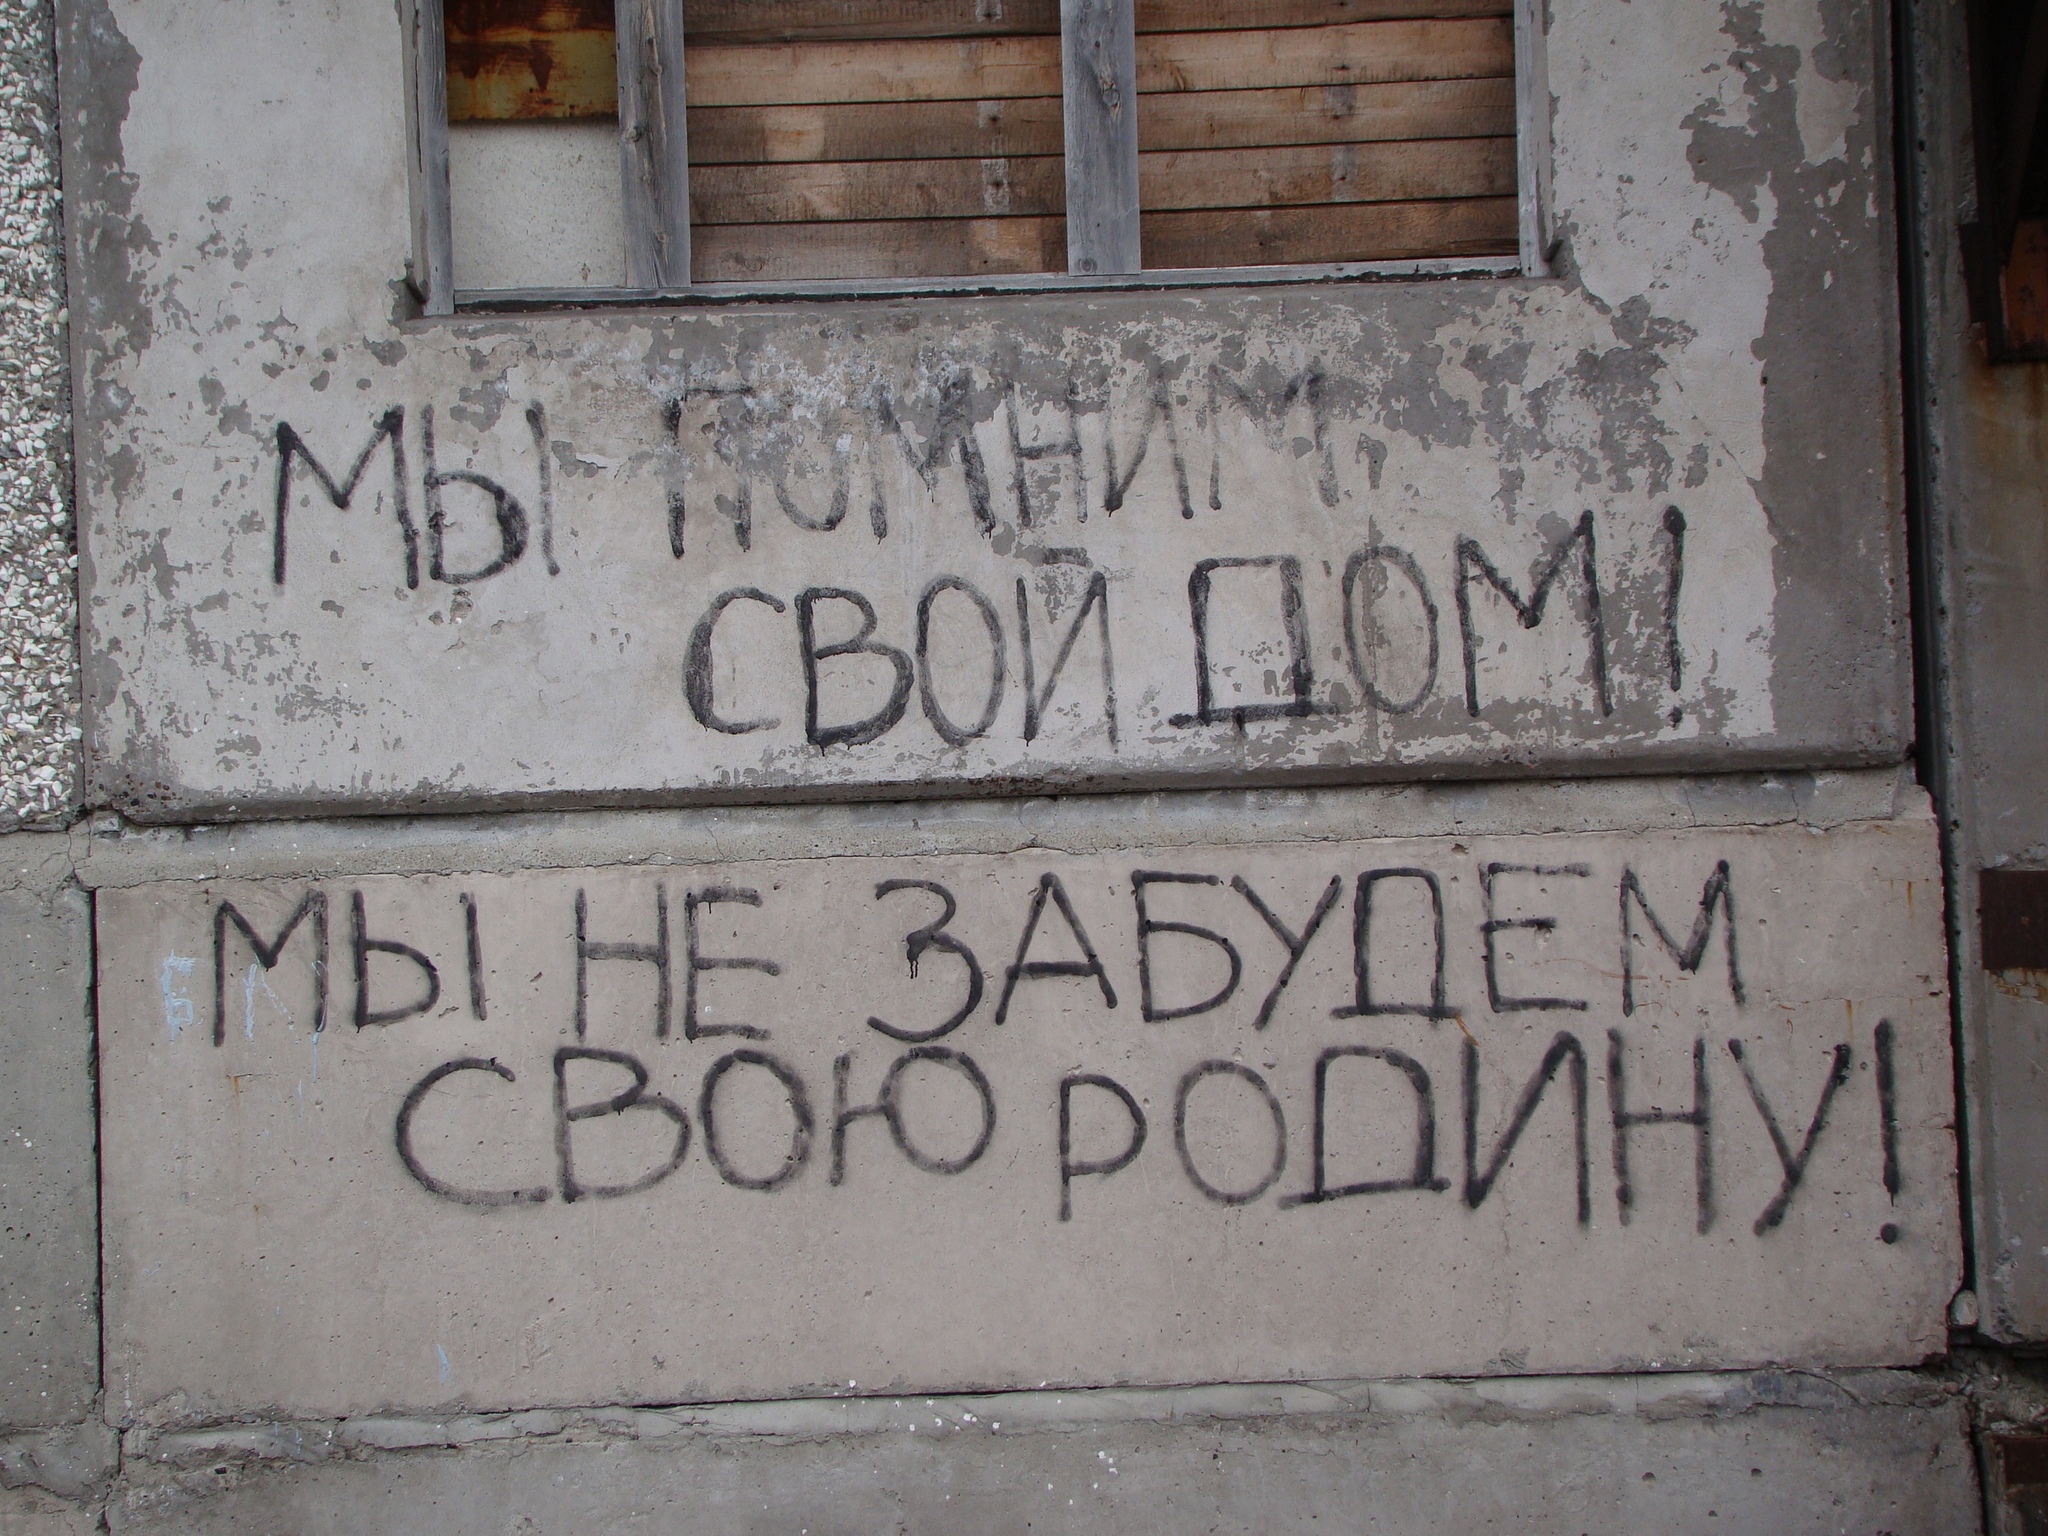 МЫ ПОМНИМ
СВОЙ ДОМ!
МЫ НЕ ЗАБУДЕМ
СВОЮ РОДИНУ!